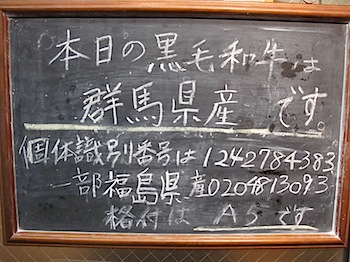 本日の黒毛和牛は
群馬県産です。
個体識別番号は1242784383
一部福島県産0204813093
格付はA5です